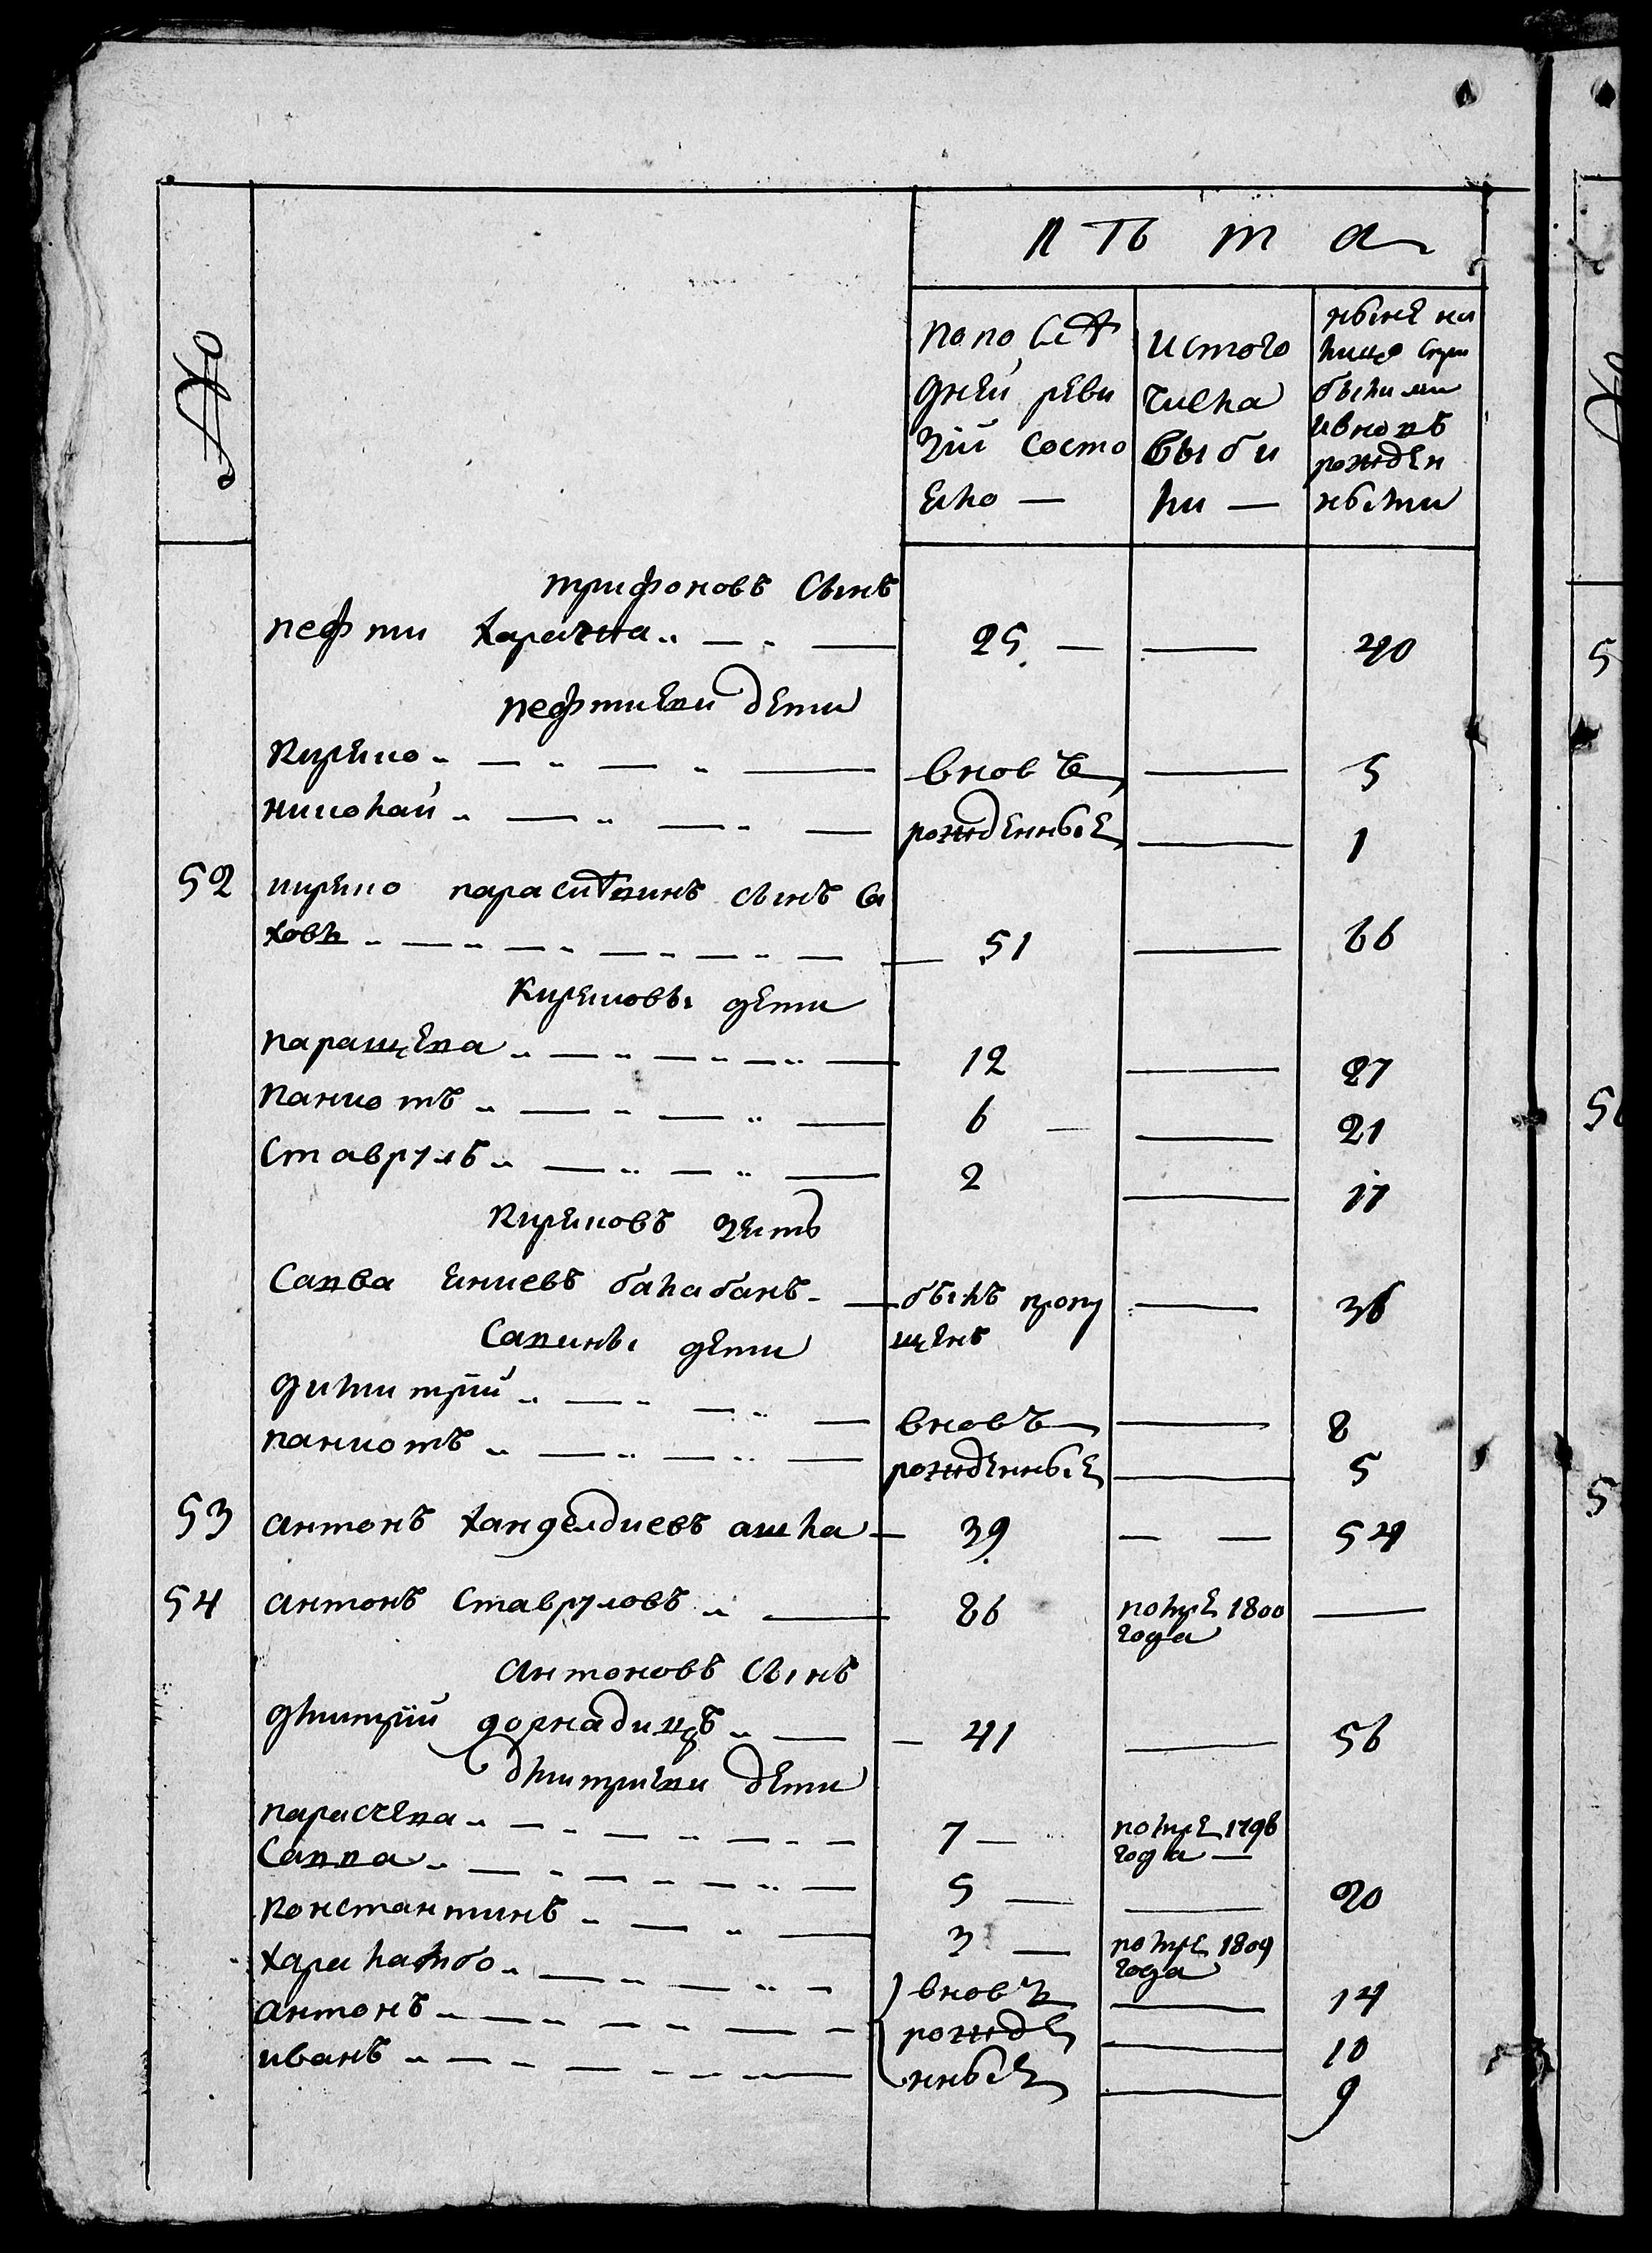 №
лѣта
по послѣ
дней реви
зіи состо
яло —
ис того
числа
выбы
ли —
ныне на
лицо с при
былыми
и вновь
рожден
ными
трифоновъ сынъ
лефти харачка 25 — 40
лефтиевы дети
кирьяко вновь 5
николай рожденные 1
52 кирьяко параскевинъ сынъ са
ховъ 51 66
кирьяковы дети
паращева 12 27
паниотъ 6 21
ставрулъ 2 17
кирьяковъ зять
савва яниевъ балабанъ былъ пропу 36
щенъ
савины дети
димитрій вновь 8
паниотъ рожденные 5
53 антонъ хандылдиевъ ашла 39 54
54 антонъ ставруловъ 86 помре 1800
года
антоновъ сынъ
дмитрій 41 56
дмитриевы дети
парасчева 7 помре 1796
года
савва 5 20
константинъ 3 помре 1809
года
харалампо вновь 14
антонъ рожде 10
иванъ нные 9